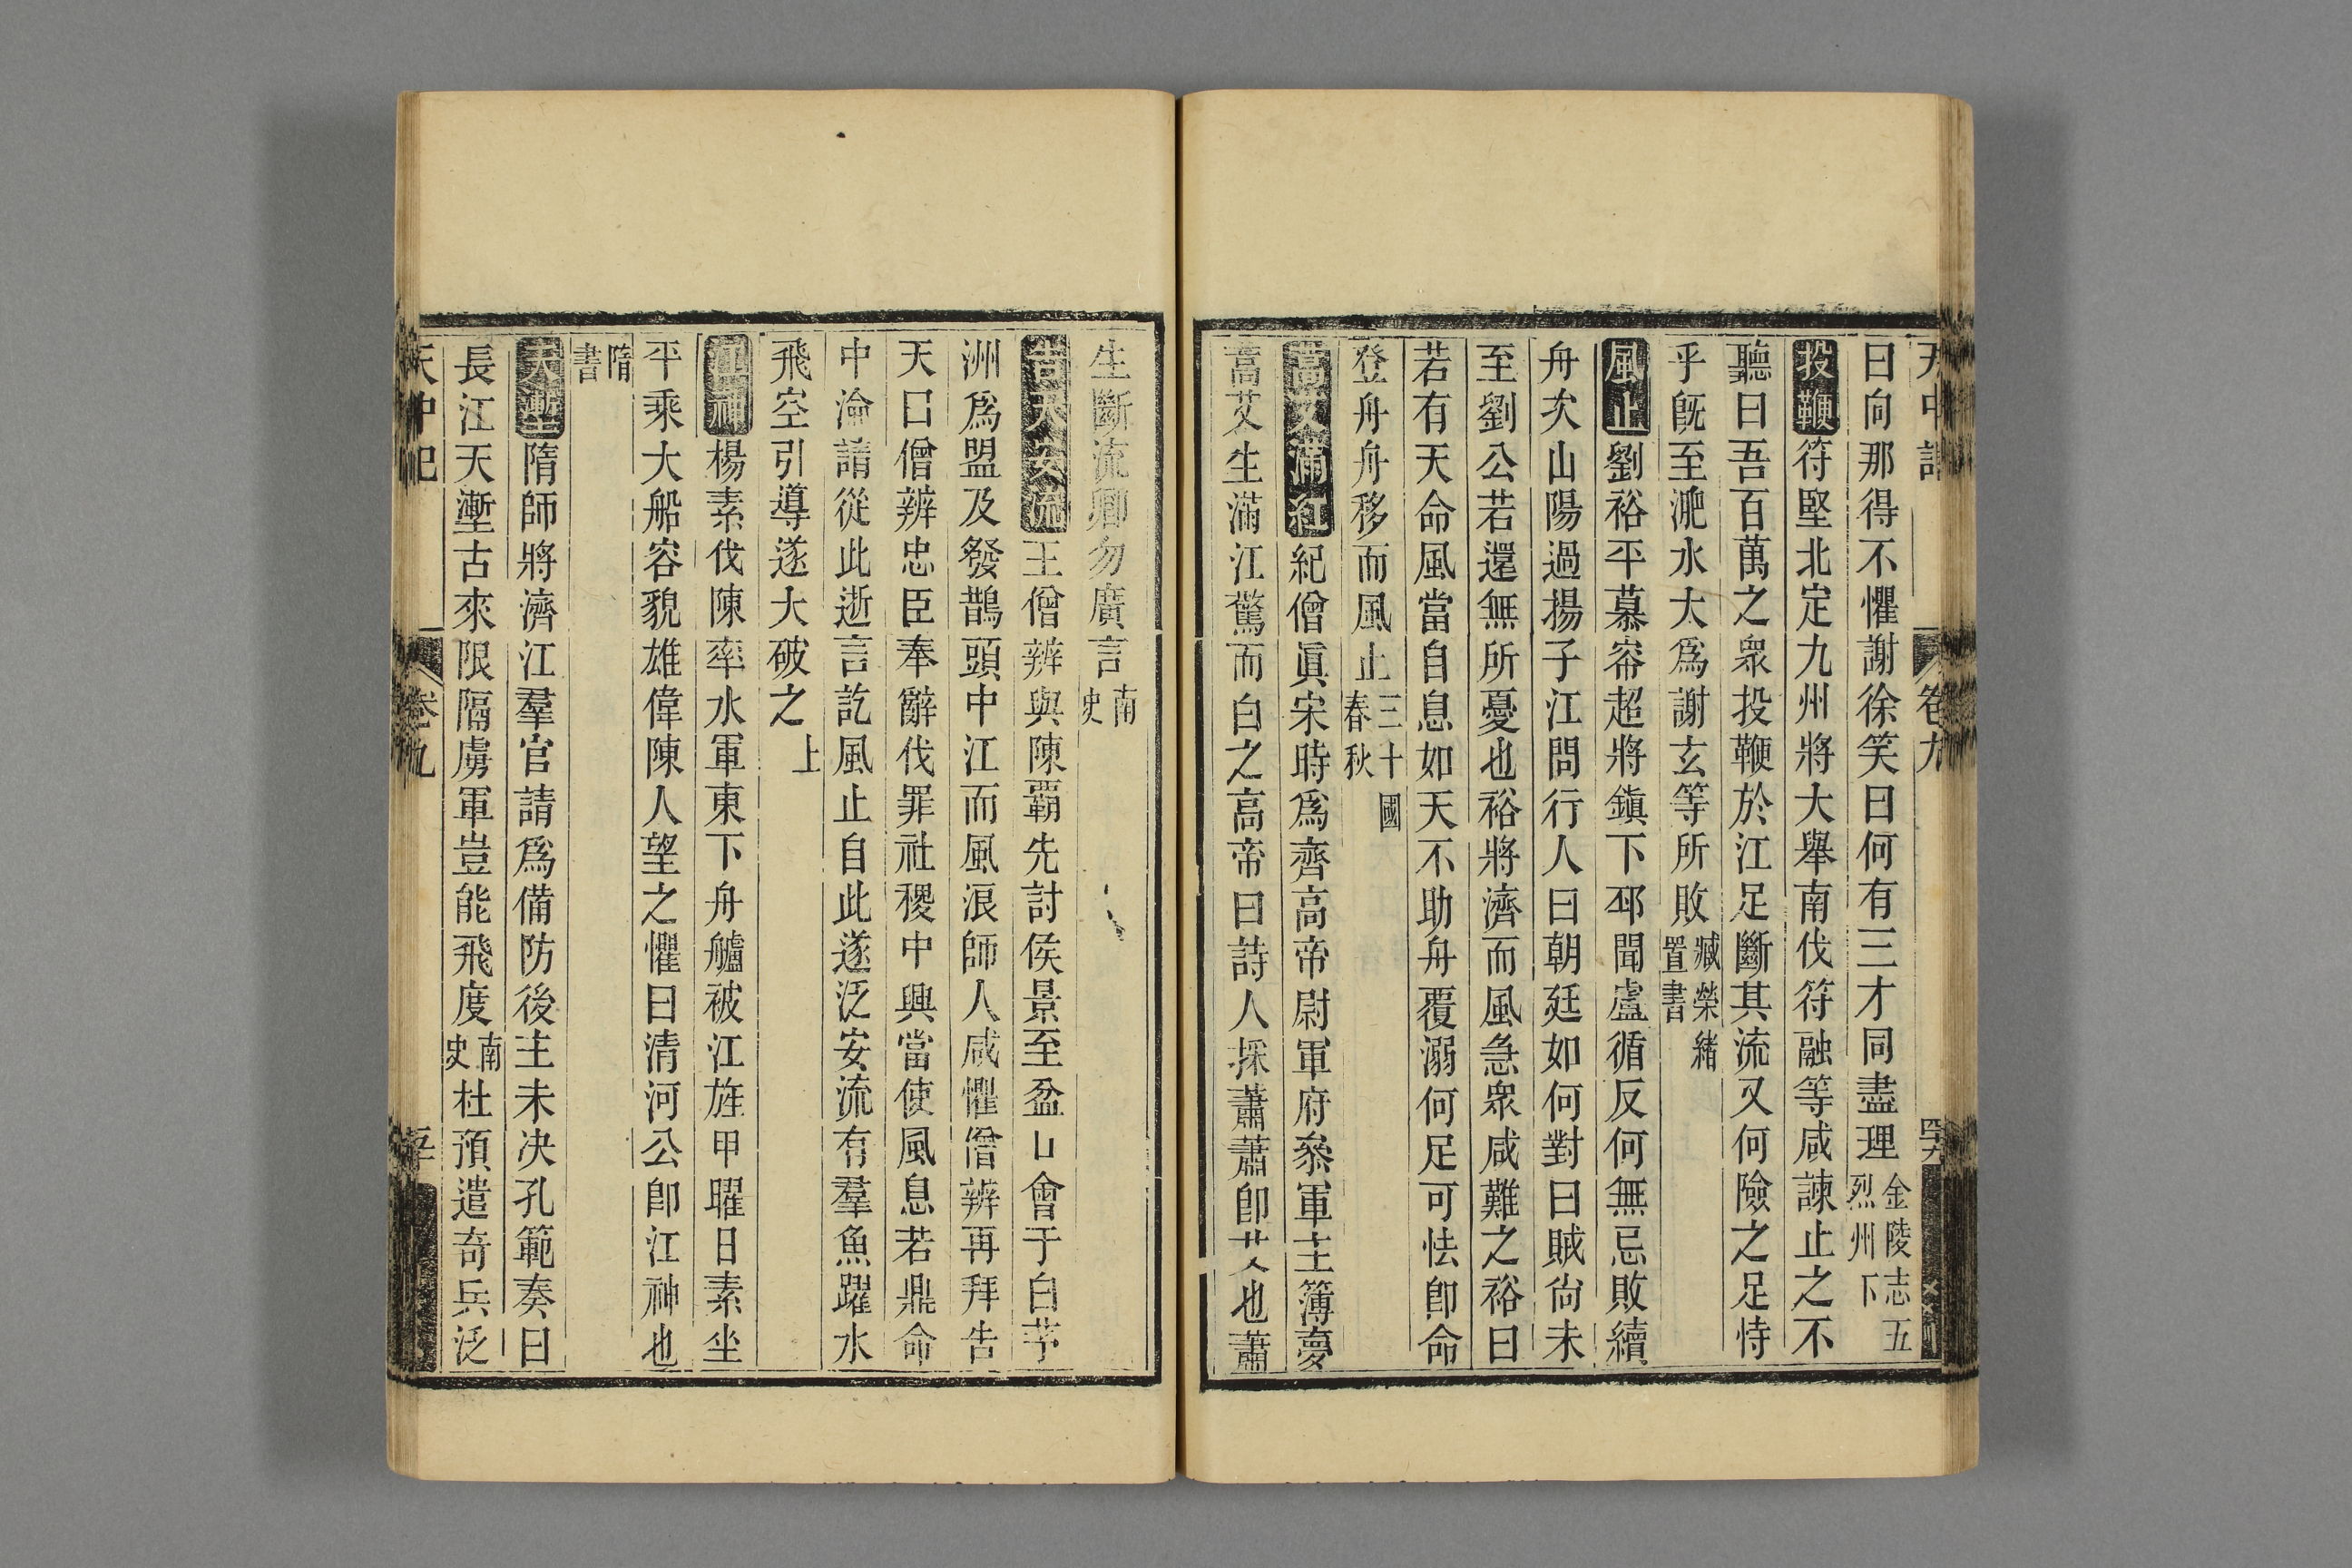 天中記 卷九
曰向那得不懼謝徐笑曰何有三才同盡理金陵志五烈州下
投鞭符堅北定九州將大舉南伐符融等咸諫止之不
聽曰吾百萬之衆投鞭於江足斷其流又何險之足恃
乎旣至淝水大爲謝玄等所敗臧榮緒置書
風止劉裕平慕容超將鎮下邳聞盧循反何無忌敗續
舟次山陽過揚子江問行人曰朝廷如何對曰賊尙未
至劉公若還無所憂也裕將濟而風急衆咸難之裕曰
若有天命風當自息如天不助舟覆溺何足可怯卽命
登舟舟移而風止三十國春秋
蒿艾滿紅紀僧眞宋時爲齊高帝尉軍府叅軍主簿夢
蒿艾生滿江驚而白之高帝曰詩人採蕭蕭卽艾也蕭
生斷流卿勿廣言南史
告天安流王僧辨與陳覇先討侯景至盆口會于白茅
洲爲盟及發鵲頭中江而風浪師人咸懼僧辨再拜告
天曰僧辨忠臣奉辭伐罪社稷中興當使風息若鼎命
中淪請從此逝言訖風止自此遂泛安流有羣魚躍水
飛空引導遂大破之上
江神楊素伐陳率水軍東下舟艫被江旌甲曜日素坐
平乘大船容貌雄偉陳人望之懼曰清河公卽江神也
隋書
天塹隋師將濟江羣官請爲備防後主未決孔範奏曰
長江天塹古來限隔虜軍豈能飛度南史杜預遣奇兵泛
天中記 卷九